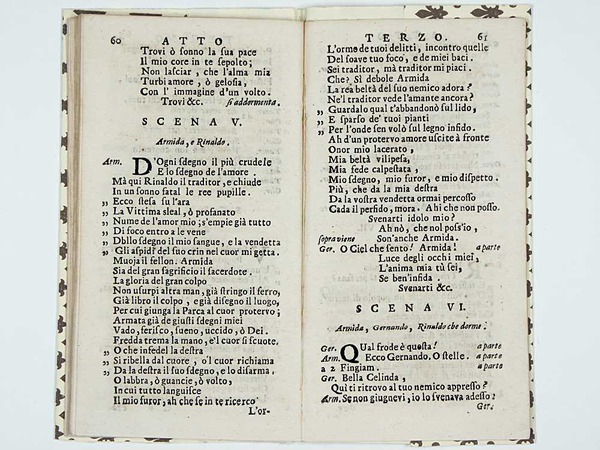 60 ATTO
Trovi ò sonno la sua pace
Il mio core in te sepolto;
Non lasciar, che l'alma mia
Turbi amore, ò gelosia,
Con l' immagine d'un volto.
Trovi &c. si addormenta.
SCENA V.
Armida, e Rinaldo.
Arm. D'Ogni sdegno il più crudele
E lo sdegno de l'amore.
Mà qui Rinaldo il traditor, e chiude
In un sonno fatal le ree pupille.
„ Ecco stesa su l'ara
„ La Vittima sleal, ò profanato
„ Nume de l'amor mio; s'empie già tutto
„ Di foco entro a le vene
„ Dello sdegno il mio sangue, e la vendetta
„ Gli aspidi del suo crin nel cuor mi getta.
Muoja il fellon. Armida
Sia del gran sagrificio il sacerdote.
La gloria del gran colpo
Non usurpi altra man, già stringo il ferro,
Già libro il colpo, e già disegno il luogo,
Per cui giunga la Parca al cuor protervo;
Armata già de giusti sdegni miei
Vado, ferisco, sueno, uccido, ò Dei.
Fredda trema la mano, e'l cuor si scuote.
„ O che infedel la destra
„ Si ribella dal cuore, o'l cuor richiama
„ Da la destra il suo sdegno, e lo disarma.
O labbra, ò guancie, ò volto,
In cui tutto languisce
Il mio furor, ah che se in te ricerco
L'or-
TERZO. 61
L'orme de tuoi delitti, incontro quelle
Del soave tuo foco, e de miei baci.
Sei traditor, mà traditor mi piaci.
Che? Sì debole Armida
La rea beltà del suo nemico adora?
Ne'l traditor vede l'amante ancora?
„ Guardalo qual t'abbandonò sul lido,
„ E sparso de' tuoi pianti
„ Per l'onde sen volò sul legno infido.
Ah d'un protervo amore uscite à fronte
Onor mio lacerato,
Mia beltà vilipesa,
Mia fede calpestata,
Mio sdegno, mio furor, e mio dispetto.
Più, che da la mia destra
Da la vostra vendetta ormai percosso
Cada il perfido, mora. Ahi che non posso.
Svenarti idolo mio?
Ah nò, che nol poss'io,
sopraviene Son'anche Armida.
Ger. O Ciel che sento! Armida! a parte
Luce degli occhi miei,
L'anima mia tù sei,
Se ben'infida.
Svenarti &c.
SCENA VI.
Armida, Gernando, Rinaldo che dorme.
Ger. QUal frode è questa! a parte
Arm. Ecco Gernando. O stelle. a parte
a 2 Fingiam. a parte
Ger. Bella Celinda,
Quì ti ritrovo al tuo nemico appresso?
Arm. Se non giugnevi, io lo svenava adesso?
Ger.